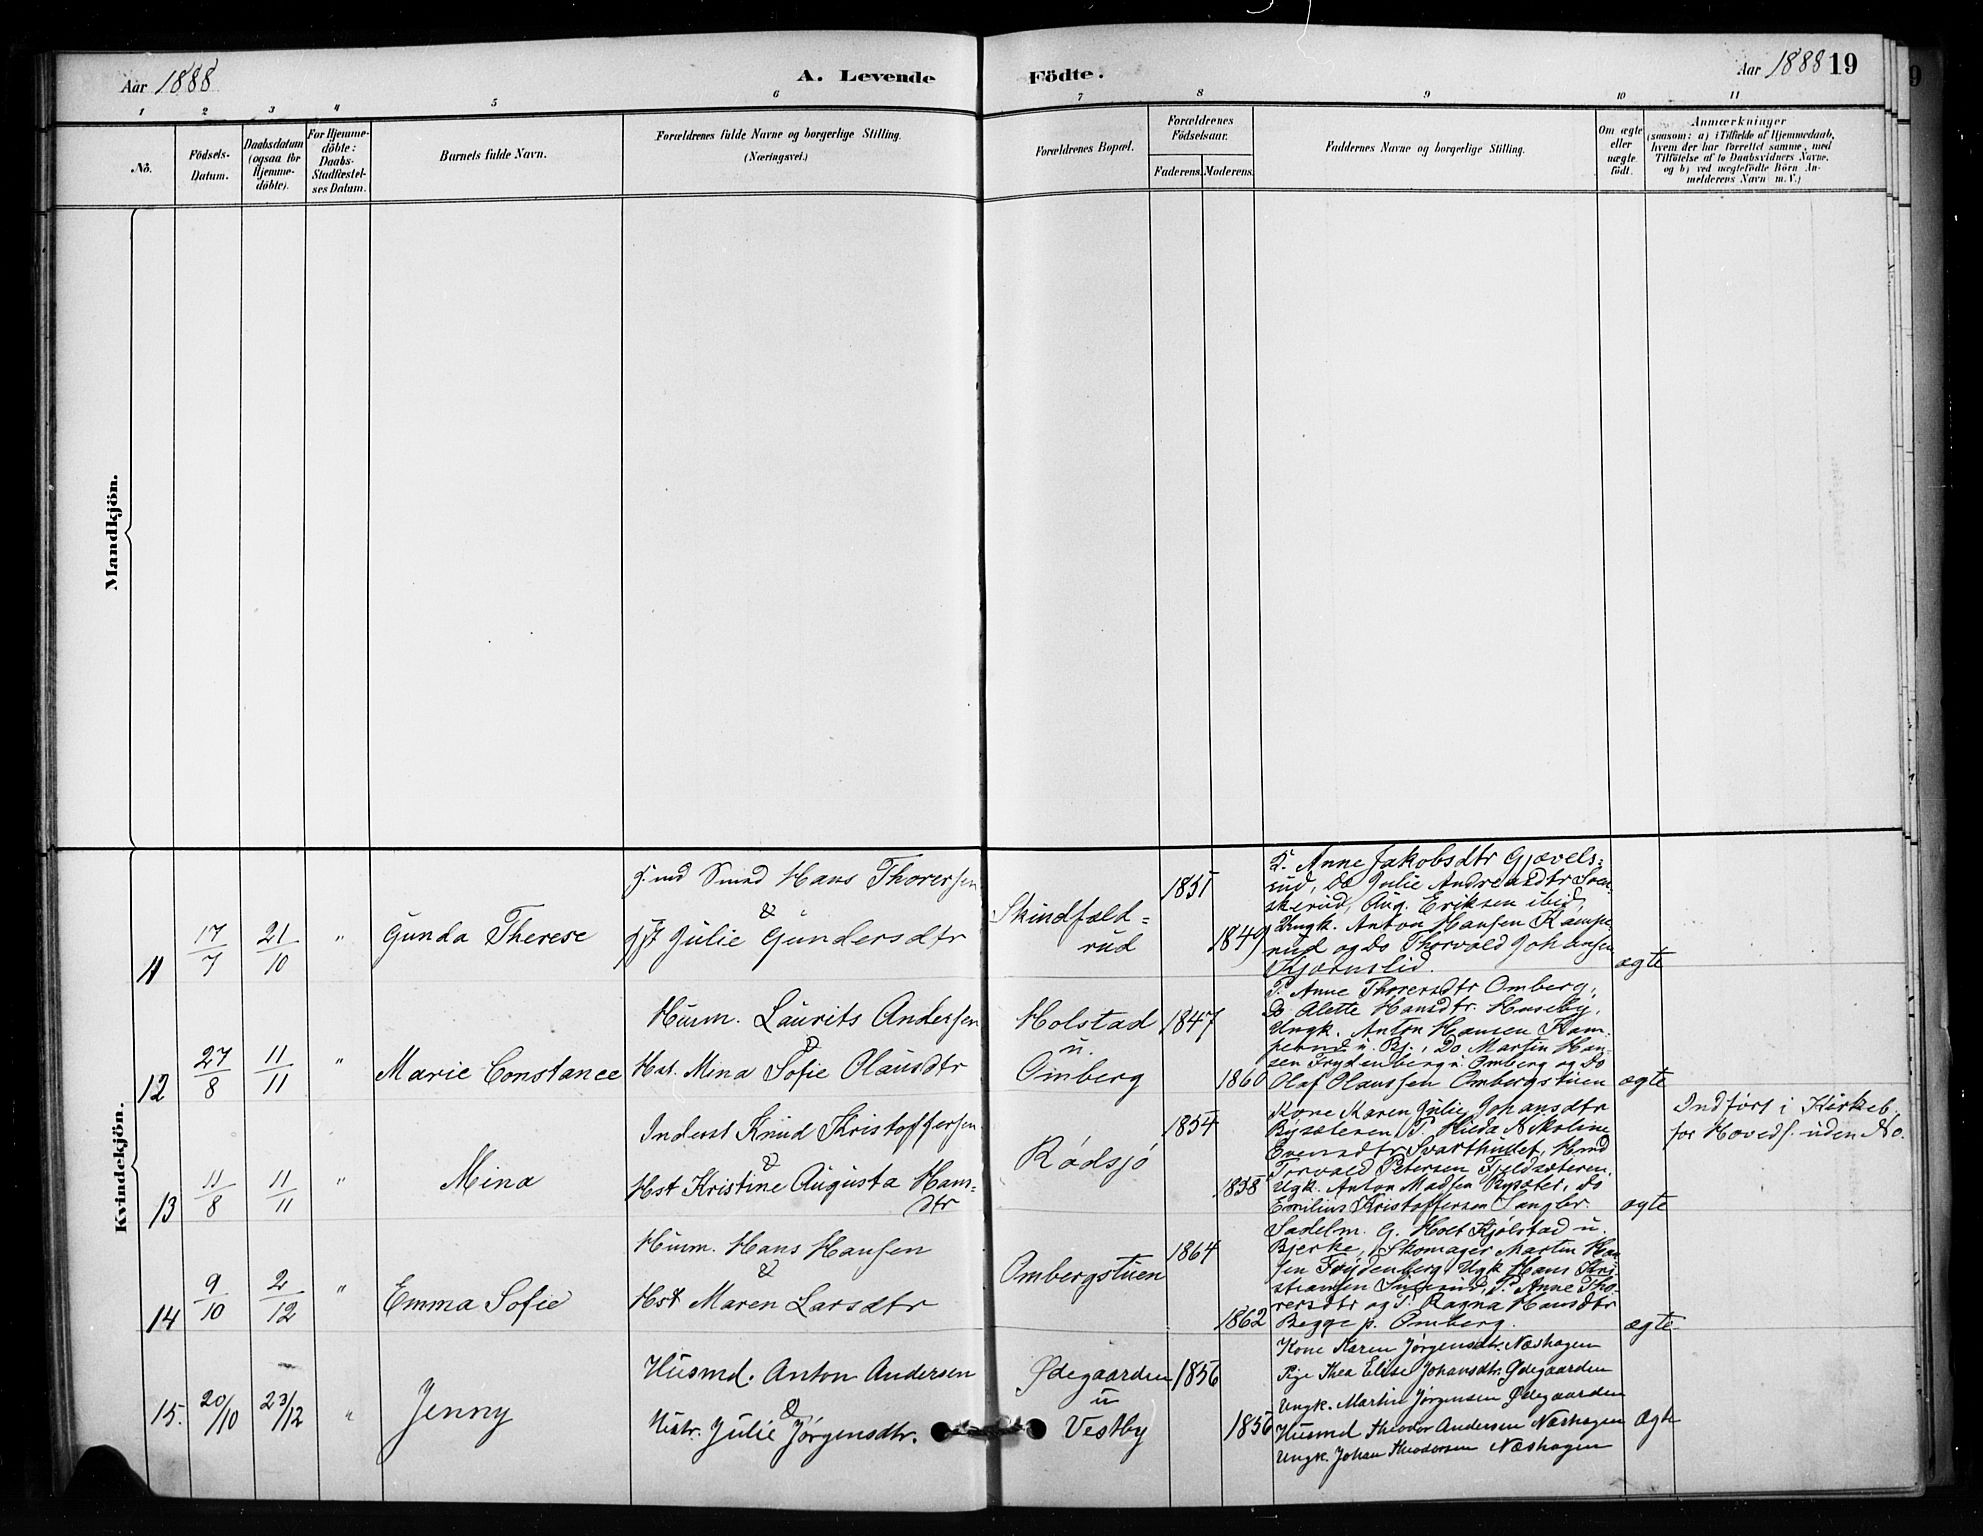 Aar 1888
A. Levende
Födte.
Aar 1888 19
1 2 3 4 5 6 7 8 9 10 11
No.
Födsels-
Datum.
Daabsdatum
(ogsaa for
Hjemme-
döbte).
For Hjemme-
döbte:
Daabs-
Stadfæstel-
ses Datum.
Barnets fulde Navn.
Forældrenes fulde Navne og borgerlige Stilling.
(Næringsvei.)
Forældrenes Bopæl.
Forældrenes
Födselsaar.
Faderens. Moderens.
Faddernes Navne og borgerlige Stilling.
Om ægte
eller
uægte
födt.
Anmærkninger
(saasom: a) i Tilfælde af Hjemmedaab,
hvem der har forrettet samme, med
Tilföielse af to Daabsvidners Navne,
og b) ved uægtefödte Börn An-
melderens Navn m. V.)
Mandkjön.
Kvindekjön.
11
17/7
21/10
"
Gunda Therese
Smed Hans Thoresen
&
Julie Gundersdtr
Skindfæld-
rud
1851
1849
Anne Jakobsdtr Gjævels-
rud, Do Julie Andreasdtr Sven-
skerud, Aug. Eriksen ibid,
Ungk. Anton Hansen Kampe-
rud og Do Thorvald Johansen
Kjærnslid.
ægte
12
27/8
11/11
"
Marie Constance
Husm. Laurits Andersen
&
Hst. Mina Sofie Olausdtr
Holstad
u.
Omberg
1847
1860
P. Anne Thorersdtr Omberg,
Do Alette Hansdtr. Huseby,
Ungk. Anton Hansen Kam-
perud u. Bj., Do Martin Han-
sen Frydenberg u. Omberg og Do
Olaf Olaussen Ombergstuen
ægte
13
11/8
11/11
"
Mina
Inderst Knud Kristoffersen
&
Hst Kristine Augusta Hans-
dtr
Rødsjø
1854
1858
Kone Karen Julie Johansdtr
Bysæteren, P. Hilda Nikoline
Evensdtr Svarthullet, Hmd
Torvald Petersen Fjeldsæteren,
Ugk. Anton Madsen Bysæter, Do
Emilius Kristoffersen
ægte
Indført i Kirkeb.
for Hoveds. uden No.
14
9/10
2/12
"
Emma Sofie
Husm. Hans Hansen
&
Hst Maren Larsdtr
Ombergstuen
1864
1862
Sadelm. G. Holt Kjølstad u.
Bjerke, Skomager Martin Han-
sen Frydenberg, Ugk Hans Kri-
stiansen P. Anne Tho-
rersdtr og P. Ragna Hansdtr
Begge p. Omberg.
ægte
15.
20/10
23/12
"
Jenny
Husmd. Anton Andersen
&
Hstr. Julie Jørgensdtr.
Ødegaarden
u
Vestby
1856
1856
Kone Karen Jørgensdtr. Næshagen
Pige Thea Elise Johansdtr. Ødegaarden
Ungk. Martin Jørgensen Ødegaarden
Husmd Theodor Andersen Næshagen
Ungk. Johan Theodorsen Næshagen
Ægte